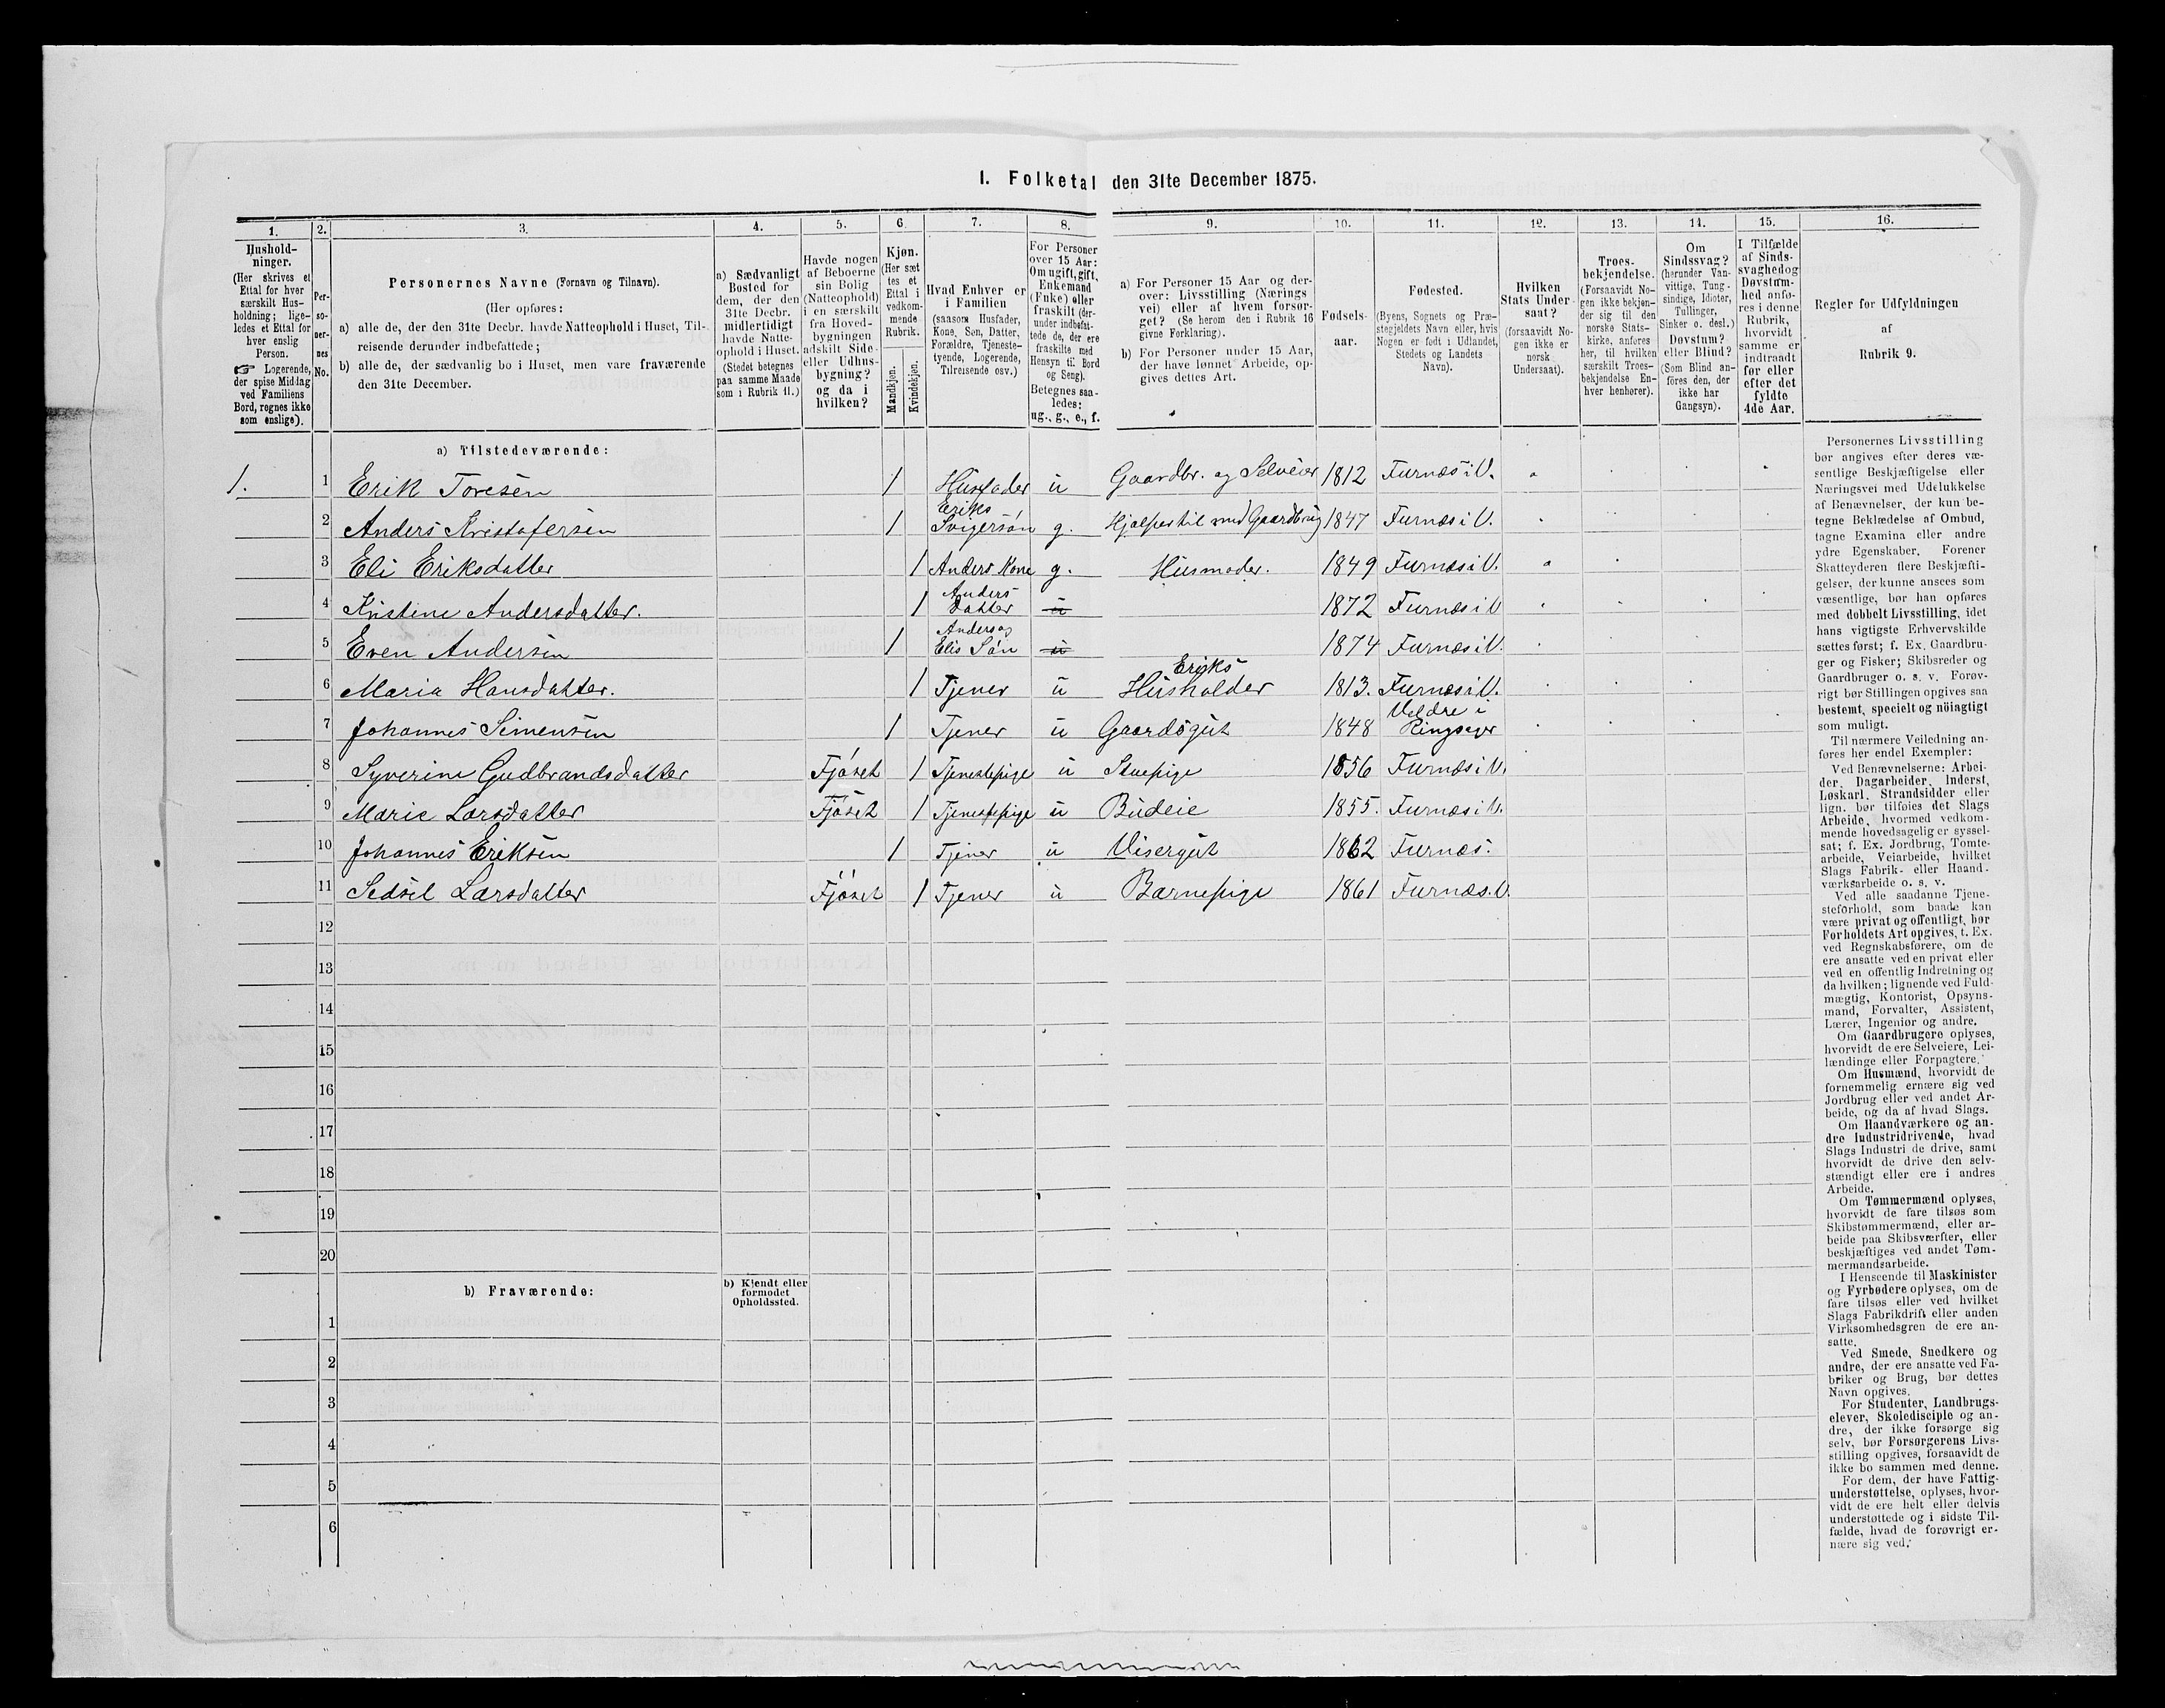 I. Folketal den 31te December 1875.
1. 2. 3. 4. 5. 6. 7. 8. 9. 10. 11. 12. 13. 14. 15. 16.
Hushold-
ninger.
(Her skrives et
Ettal for hver
særskilt Hus-
holdning; lige-
ledes et Ettal for
hver enslig
Person.
☞ Logerende,
der spise Middag
ved Familiens
Bord, regnes ikke
som enslige).
Per-
so-
ner-
nes
No.
Personernes Navne (Fornavn og Tilnavn).
(Her opføres:
a) alle de, der den 31te Decbr. havde Natteophold i Huset, Til-
reisende derunder indbefattede;
b) alle de, der sædvanlig bo i Huset, men vare fraværende
den 31te December.
a) Sædvanligt
Bosted for
dem, der den
31te Decbr.
midlertidigt
havde Natte-
ophold i Huset.
(Stedet betegnes
paa samme Maade
som i Rubrik 11.)
Havde nogen
af Beboerne
sin Bolig
(Natteophold)
i en særskilt
fra Hoved-
bygningen
adskilt Side-
eller Udhus-
bygning?
og da i
hvilken?
Kjøn.
(Her sæt-
tes et
Ettal i
vedkom-
mende
Rubrik.
Mandkjøn.
Kvindekjøn.
Hvad Enhver er
i Familien
(saasom Husfader,
Kone, Søn, Datter,
Forældre, Tjeneste-
tyende, Logerende,
Tilreisende osv.)
For Personer
over 15 Aar:
Om ugift, gift,
Enkemand
(Enke) eller
fraskilt (der-
under indbefat-
tede de, der ere
fraskilte med
Hensyn til Bord
og Seng).
Betegnes saa-
ledes:
ug., g., e., f.
a) For Personer 15 Aar og der-
over: Livsstilling (Nærings-
vei) eller af hvem forsør-
get? (Se herom den i Rubrik 16
givne Forklaring).
b) For Personer under 15 Aar,
der have lønnet Arbeide, op-
gives dettes Art.
Fødsels-
aar.
Fødested.
(Byens, Sognets og Præ-
stegjeldets Navn eller, hvis
Nogen er født i Udlandet,
Stedets og Landets
Navn).
Hvilken
Stats Under-
saat?
(forsaavidt No-
gen ikke er
norsk
Undersaat).
Troes-
bekjendelse.
(Forsaavidt No-
gen ikke bekjen-
der sig til den
norske Stats-
kirke, anføres
her, til hvilken
særskilt Troes-
bekjendelse En-
hver henhører).
Om
Sindssvag?
(herunder Van-
vittige, Tung-
sindige, Idioter,
Tullinger,
Sinker o. desl.)
Døvstum?
eller Blind?
(Som Blind an-
føres den, der
ikke har
Gangsyn).
I Tilfælde
af Sinds-
svaghed og
Døvstum-
hed anfø-
res i denne
Rubrik,
hvorvidt
samme er
indtraadt
før eller
efter det
fyldte
4de Aar.
Regler for Udfyldningen
af
Rubrik 9.
a) Tilstedeværende:
1. 1 Erik Toresen 1 Husfader u Gaardbr. og Selveier 1812 Furnæs i V.
2 Anders Kristofersen 1 Eriks Svigersøn g. Hjælper til med Gaardbrug 1847 Furnæs i V.
3 Eli Eriksdatter 1 Anders Kone g. Husmoder. 1849 Furnæs i V.
4 Kristine Andersdatter. 1 Anders Datter u 1872 Furnæs i V
5 Even Andersen 1 Anders og Elis Søn u 1874 Furnæs i V.
6 Maria Hansdatter. 1 Tjener u Eriks Husholder 1813. Furnæs i V.
7 Johannes Simensen 1 Tjener u Gaardsgut 1848 Veldre i Ringsager
8 Syverine Gudbrandsdatter Fjøset 1 Tjenestepige u Stuepige 1856 Furnæs i V.
9 Marie Larsdatter Fjøset 1 Tjenestepige u Budeie 1855. Furnæs i V.
10 Johannes Eriksen 1 Tjener u Visergut 1862 Furnæs.
11 Sedsel Larsdatter Fjøset 1 Tjener u Barnepige 1861 Furnæs. V.
12
13
14
15
16
17
18
19
20
b) Fraværende:
b) Kjendt eller
formodet
Opholdssted.
1
2
3
4
5
6
Personernes Livsstilling
bør angives efter deres væ-
sentlige Beskjæftigelse eller
Næringsvei med Udelukkelse
af Benævnelser, der kun be-
tegne Beklædelse af Ombud,
tagne Examina eller andre
ydre Egenskaber. Forener
Skatteyderen flere Beskjæfti-
gelser, der kunne ansees som
væsentlige, bør han opføres
med dobbelt Livsstilling, idet
hans vigtigste Erhvervskilde
sættes først; f. Ex. Gaardbru-
ger og Fisker; Skibsreder og
Gaardbruger o. s. v. Forøv-
rigt bør Stillingen opgives saa
bestemt, specielt og nöiagtigt
som muligt.
Til nærmere Veiledning an-
føres her endel Exempler:
Ved Benævnelserne: Arbei-
der, Dagarbeider, Inderst,
Løskarl, Strandsidder eller
lign. bør tilføies det Slags
Arbeide, hvormed vedkom-
mende hovedsagelig er syssel-
sat; f. Ex. Jordbrug, Tomte-
arbeide, Veiarbeide, hvilket
Slags Fabrik- eller Haand-
værksarbeide o. s. v.
Ved alle saadanne Tjene-
steforhold, som baade kan
være privat og offentligt, bør
Forholdets Art opgives, t. Ex.
ved Regnskabsførere, om de
ere ansatte ved en privat eller
ved en offentlig Indretning og
da hvilken; lignende ved Fuld-
mægtig, Kontorist, Opsyns-
mand, Forvalter, Assistent,
Lærer, Ingeniør og andre.
Om Gaardbrugere oplyses,
hvorvidt de ere Selveiere, Lei-
lændinge eller Forpagtere.
Om Husmænd, hvorvidt de
fornemmelig ernære sig ved
Jordbrug eller ved andet Ar-
beide, og da af hvad Slags.
Om Haandværkere og an-
dre Industridrivende, hvad
Slags Industri de drive, samt
hvorvidt de drive den selv-
stændigt eller ere i andres
Arbeide.
Om Tømmermænd oplyses,
hvorvidt de fare tilsøs som
Skibstømmermænd, eller ar-
beide paa Skibsværfter, eller
beskjæftiges ved andet Tøm-
mermandsarbeide.
I Henseende til Maskinister
og Fyrbødere oplyses, om de
fare tilsøs eller ved hvilket
Slags Fabrikdrift eller anden
Virksomhedsgren de ere an-
satte.
Ved Smede, Snedkere og
andre, der ere ansatte ved Fa-
briker og Brug, bør dettes
Navn opgives.
For Studenter, Landbrugs-
elever, Skoledisciple og an-
dre, der ikke forsørge sig
selv, bør Forsørgerens Livs-
stilling opgives, forsaavidt de
ikke bo sammen med denne.
For dem, der have Fattig-
understøttelse, oplyses, hvor-
vidt de ere helt eller delvis
understøttede og i sidste Til-
fælde, hvad de forøvrigt er-
nære sig ved.